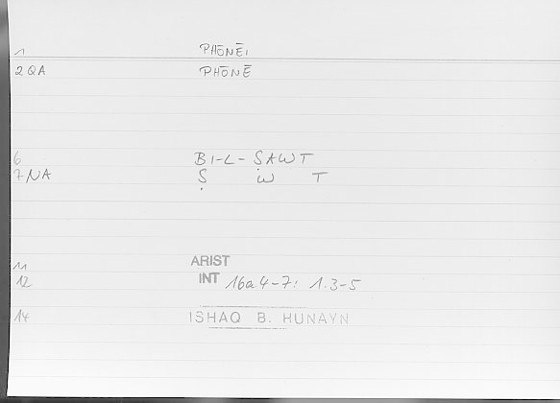 1 PHŌNĒI
2 QA PHŌNĒ
6 BI-L-ṢAWT
7 NA Ṣ W T
11 ARIST
12 INT 16a4-7: 1.3-5
14 ISHAQ B. HUNAYN